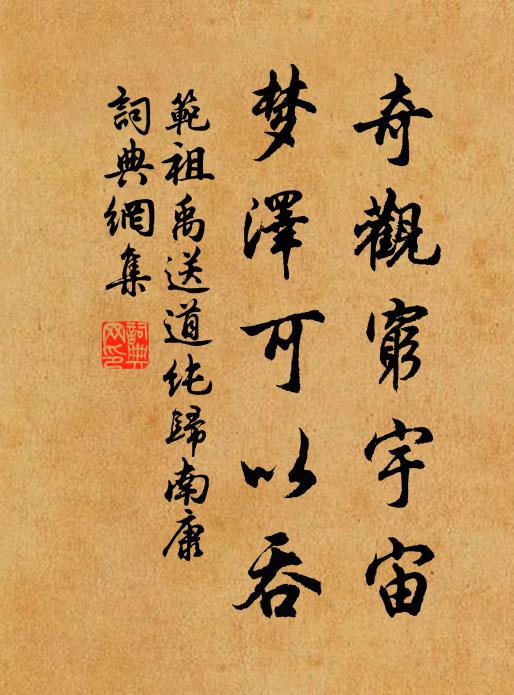 奇觀窮宇宙
梦澤可以吞
範祖禹送道純歸南康
詞典網集
詞典
网印